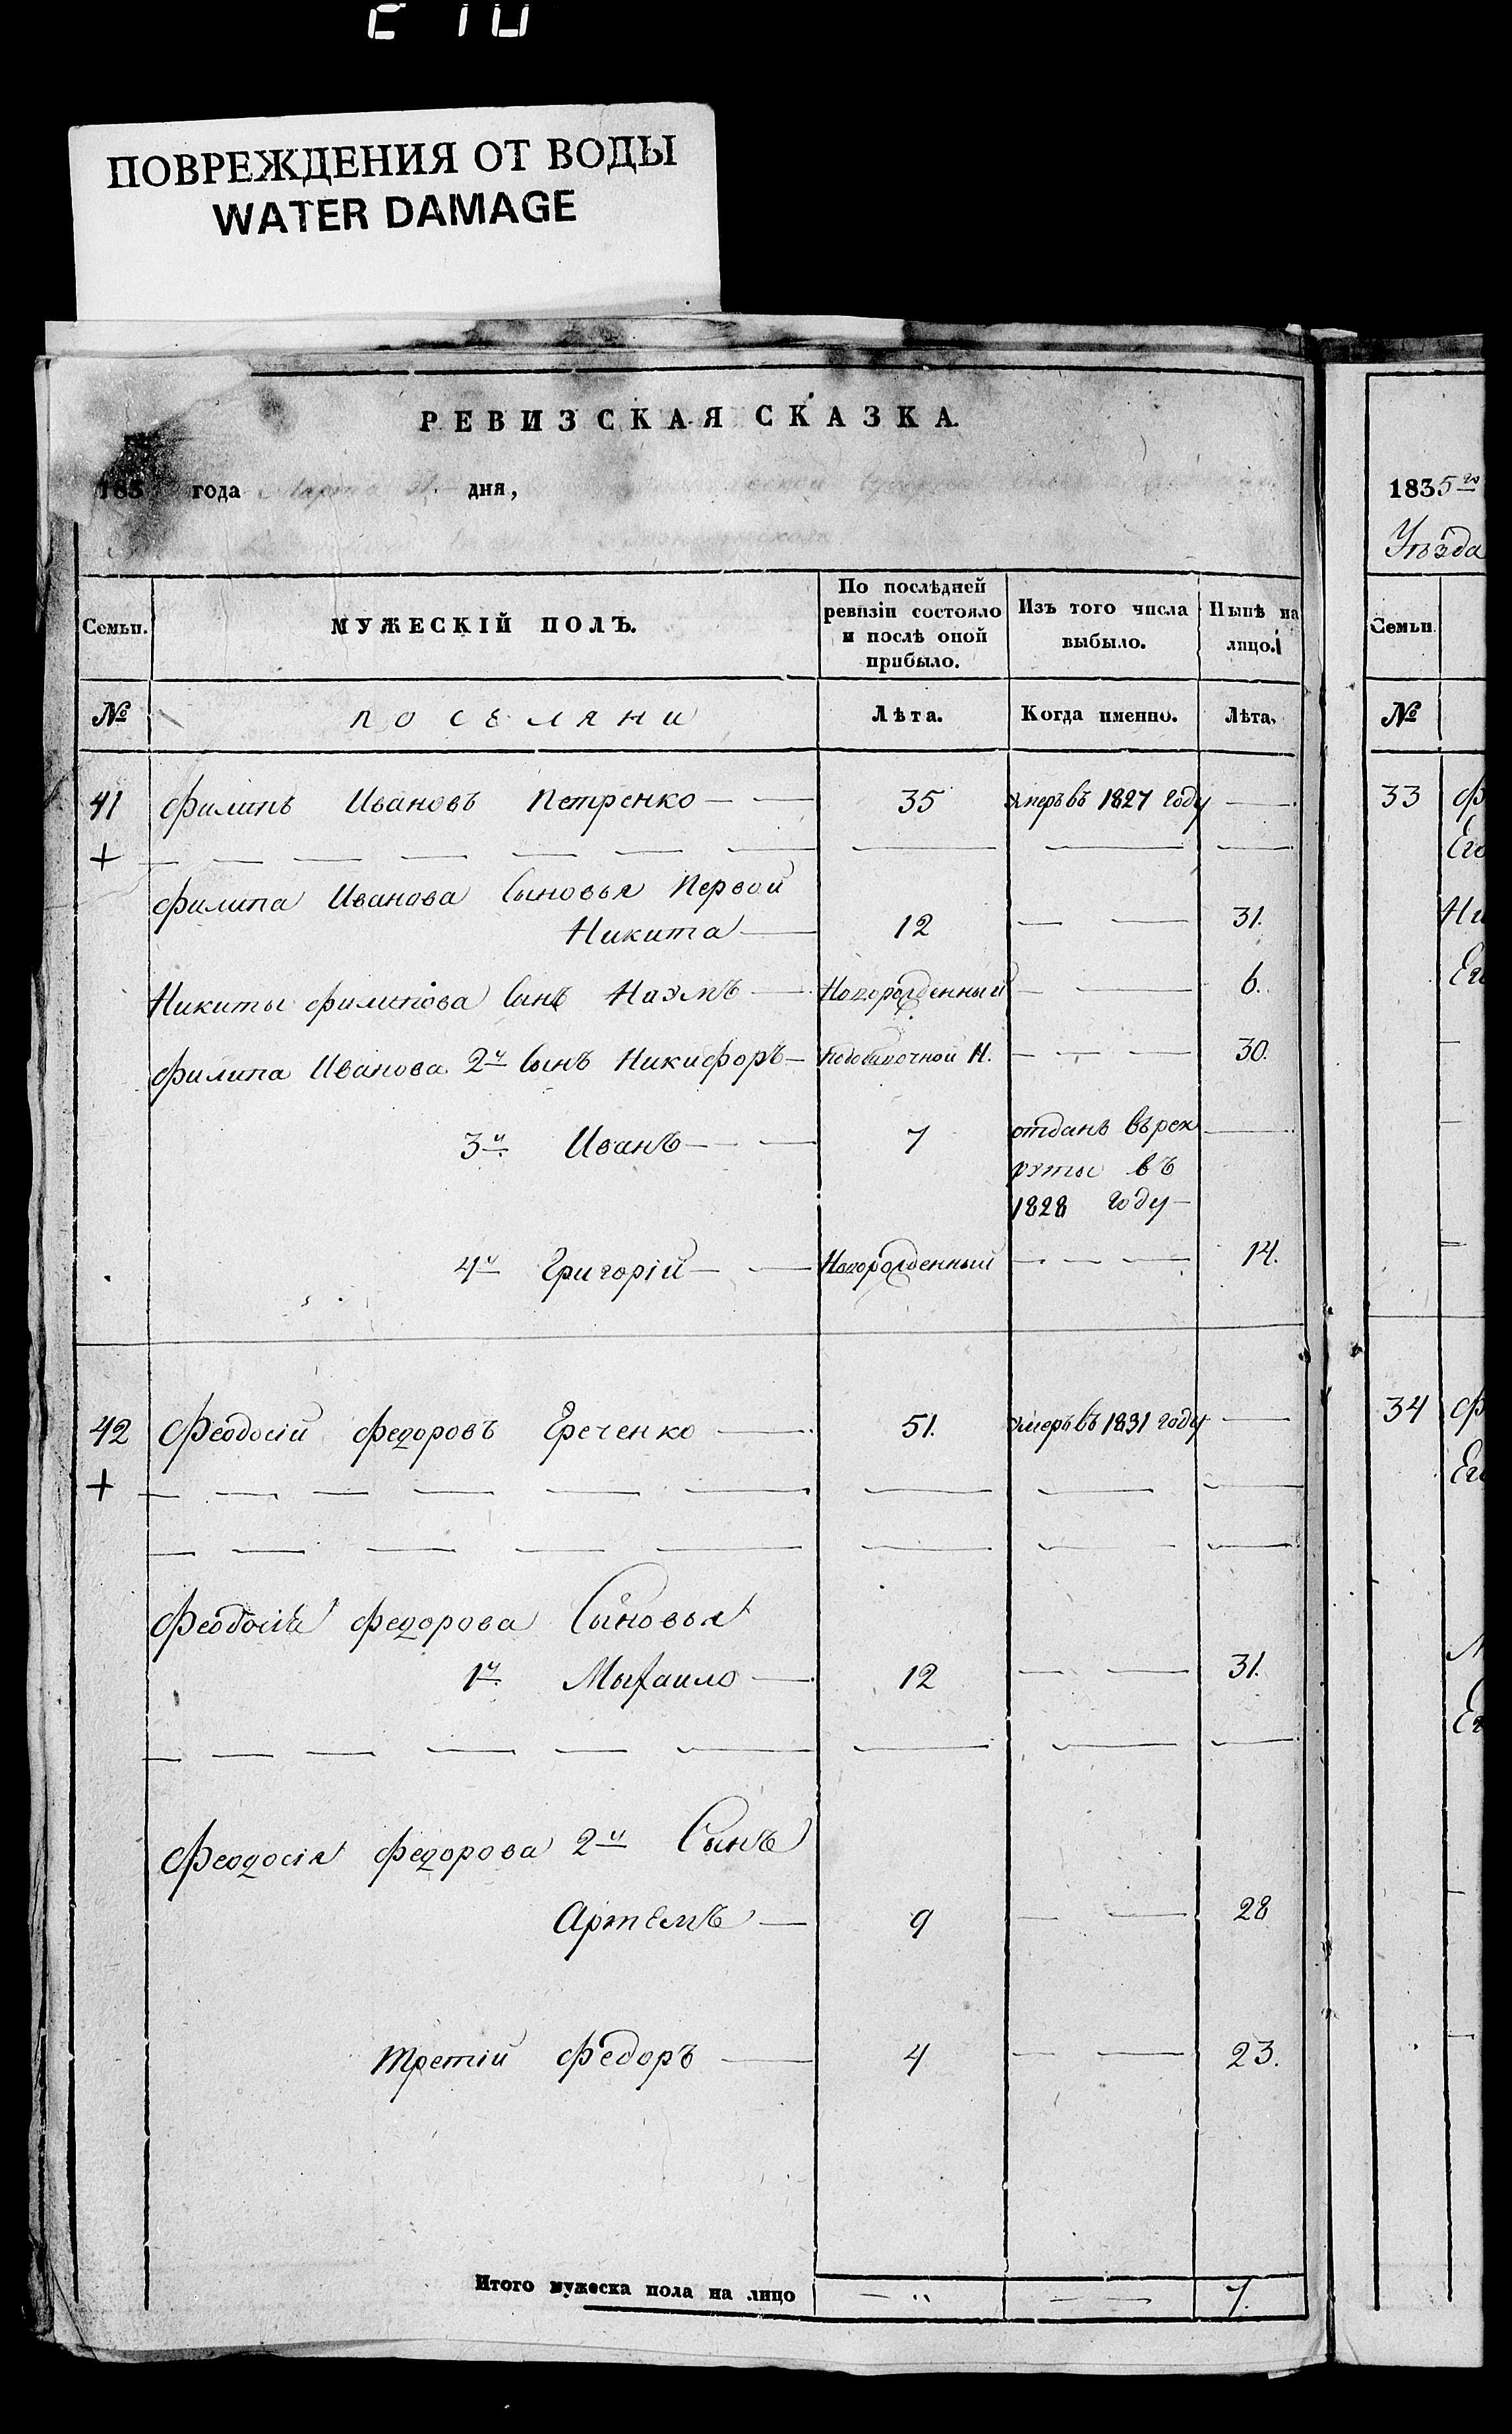 ПОВРЕЖДЕНИЯ ОТ ВОДЫ
WATER DAMAGE
РЕВИЗСКАЯ СКАЗКА.
183 года Марта 31 дня,
Семьи.
МУЖЕСКІЙ ПОЛЪ.
По послѣдней
ревизіи состояло
и послѣ оной
прибыло.
Изъ того числа
выбыло.
Нынѣ на
лицо.
№
поселяни
Лѣта.
Когда именно.
Лѣта.
41 Филипъ Ивановъ Петренко 35 умеръ въ 1827 году
+
Филипа Иванова Сыновья Первой
Никита 12 31.
Никиты Филипова Сынъ Наумъ Новорожденный 6.
Филипа Иванова 2й Сынъ Никифоръ Н. 30.
3й Иванъ 7 отданъ въ рек
руты въ
1828 году
4й Григорій Новорожденный 14.
42 Феодосій Федоровъ Греченко 51. умеръ въ 1831 году
+
Феодосія Федорова Сыновья
1й Мыхаило 12 31.
Феодосія Федорова 2й Сынъ
Артемъ 9 28
Третій Федоръ 4 23.
Итого мужеска пола на лицо 7.
1835го
Уѣзда
Семьи.
№
33 Ф
Его
Ни
Его
34 Ф
Его